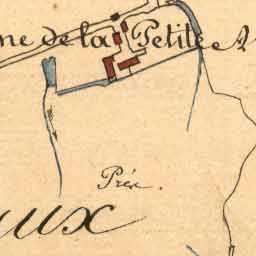 ne de la Petite
Prés.
aux